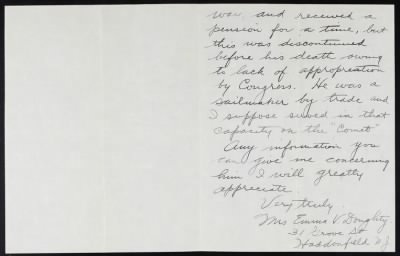 war, and received a
pension for a time, but
this was discontinued
before his death owing
to lack of appropriation
by Congress. He was a
sailmaker by trade and
I suppose served in that
capacity on the "Comet"
Any information you
can give me concerning
him I will greatly
appreciate.
Very truly.
Mrs Emma V Doughty
31 Grove St
Haddonfield N.J.